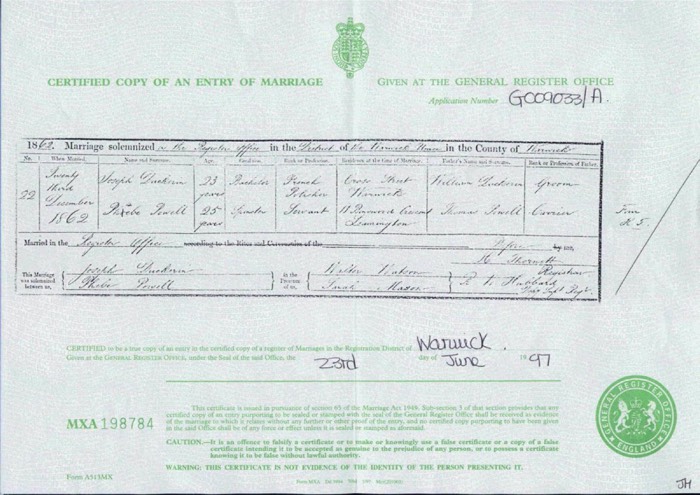 CERTIFIED COPY OF AN ENTRY OF MARRIAGE
GIVEN AT THE GENERAL REGISTER OFFICE
Application Number G009033/A.
1862. Marriage solemnized in the Register Office in the District of the Warwick in the County of Warwick
No. When Married. Name and Surname. Age. Condition. Rank or Profession. Residence at the time of Marriage. Father's Name and Surname. Rank or Profession of Father.
22 Twenty third December 1862
Joseph 23 years Bachelor French Polisher Cross Street Warwick William Groom
Phebe Powell 25 years Spinster Servant 11 Crescent Leamington Thomas Powell Carrier
Married in the Register Office according to the Rites and Ceremonies of the Before by me,
This Marriage was solemnized between us, Joseph
Phebe Powell
in the Presence of us, Walter Watson
Sarah Mason
Thornett Registrar
Hubbard
CERTIFIED to be a true copy of an entry in the certified copy of a register of Marriages in the Registration District of Warwick.
Given at the GENERAL REGISTER OFFICE, under the Seal of the said Office, the 23rd day of June 1997
MXA 198784
This certificate is issued in pursuance of section 65 of the Marriage Act 1949. Sub-section 3 of that section provides that any
certified copy of an entry purporting to be sealed or stamped with the seal of the General Register Office shall be received as evidence
of the marriage to which it relates without any further or other proof of the entry, and no certified copy purporting to have been given
in the said Office shall be of any force or effect unless it is sealed or stamped as aforesaid.
CAUTION.—It is an offence to falsify a certificate or to make or knowingly use a false certificate or a copy of a false
certificate intending it to be accepted as genuine to the prejudice of any person, or to possess a certificate
knowing it to be false without lawful authority.
WARNING: THIS CERTIFICATE IS NOT EVIDENCE OF THE IDENTITY OF THE PERSON PRESENTING IT.
Form A513MX
GENERAL REGISTER OFFICE
ENGLAND
JH